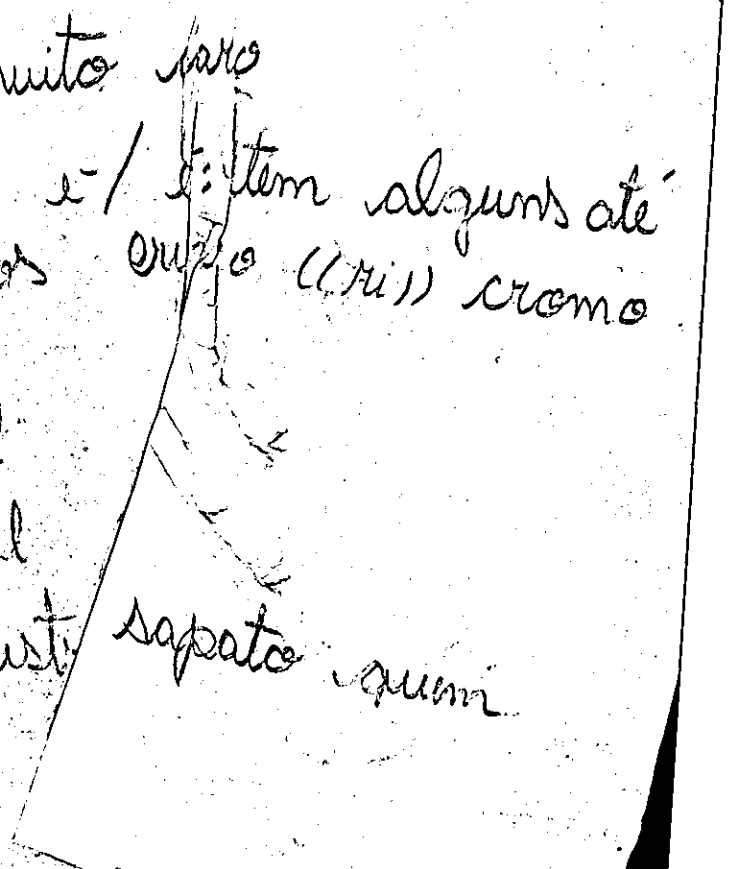 uito raro
é/ é: tem alguns até
os ((ri)) cromo
l
sapato quem